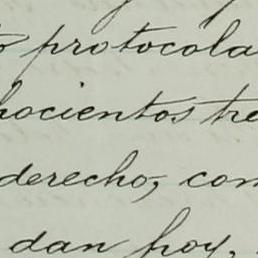 protocola
hocientos tre
derecho, con
dan hoy,